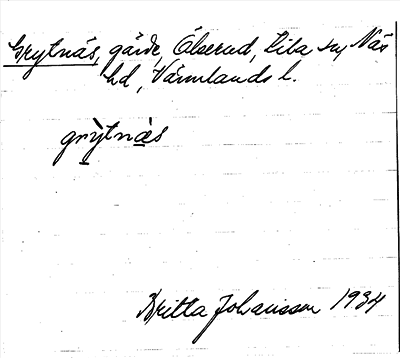 Grytnäs, gärde, Ölserud, Eila sn, Näs
hd, Värmlands l.
grỳtnäs
Britta Johansson 1934